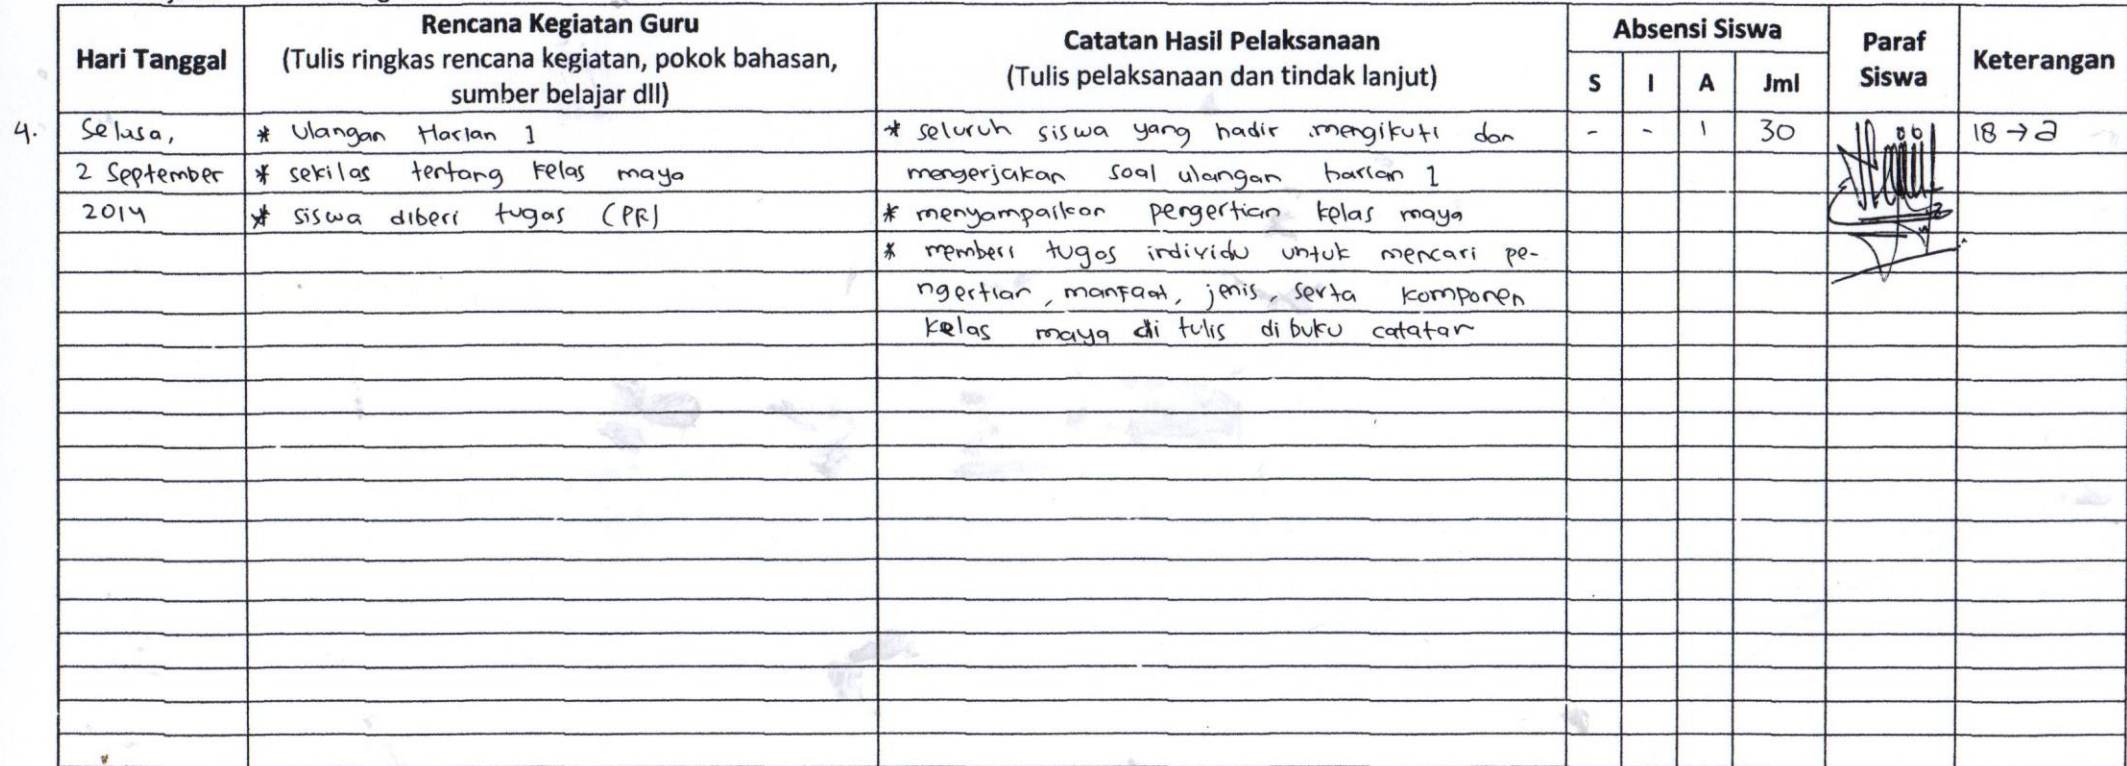 Hari Tanggal
Rencana Kegiatan Guru
(Tulis ringkas rencana kegiatan, pokok bahasan,
sumber belajar dll)
Catatan Hasil Pelaksanaan
(Tulis pelaksanaan dan tindak lanjut)
Absensi Siswa
S I A Jml
Paraf
Siswa
Keterangan
4. Selasa,
2 September
2014
* Ulangan Harian 1
* sekilas tentang kelas maya
* siswa diberi tugas (PR)
* seluruh siswa yang hadir mengikuti dan
mengerjakan soal ulangan harian 1
* menyampaikan pengertian kelas maya
* memberi tugas individu untuk mencari pe-
ngertian, manfaat, jenis, serta komponen
kelas maya di tulis di buku catatan
- - 1 30
18 → a